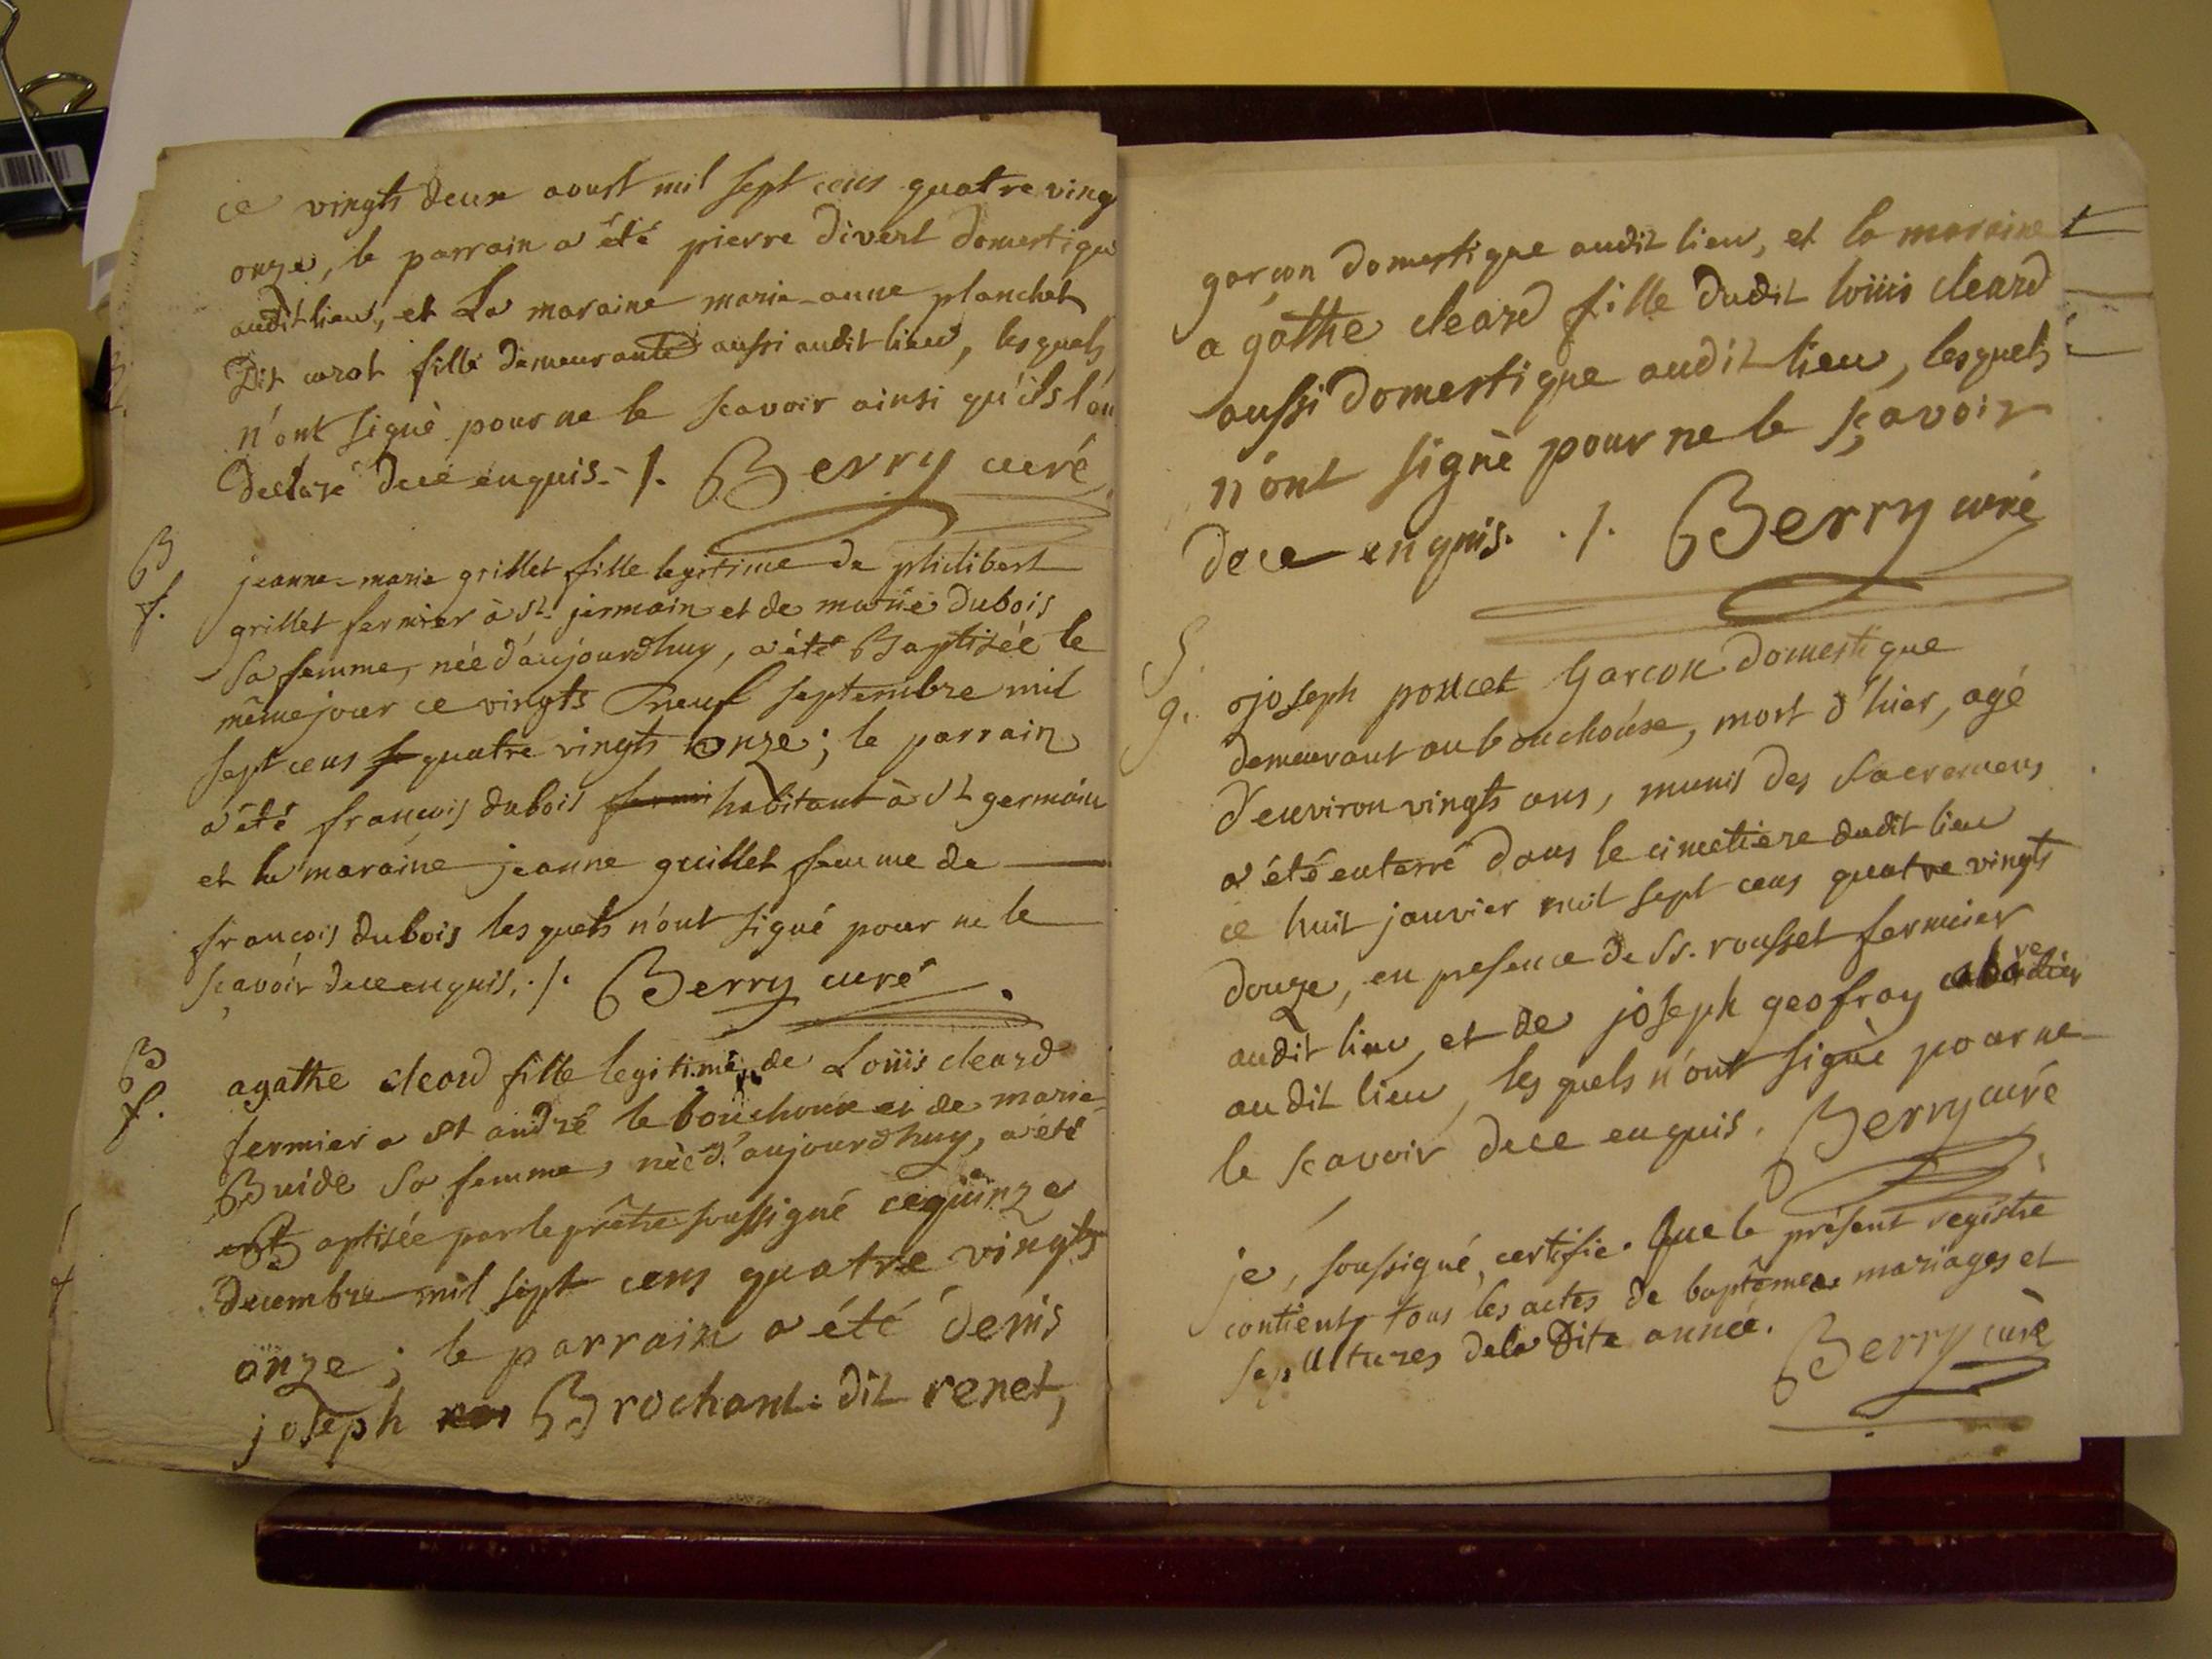 ce vingts deux aoust mil sept cens quatre ving
onze, le parrain a été pierre divert domestiqu
audit lieu, et La maraine marie-anne planchet
Dit corot fille demeurante aussi audit lieu, lesquels
n'ont signè pour ne le scavoir ainsi qu'ils l'on
declaré dece enquis. /. Berry curé
B
f.
jeanne-marie grillet fille legitime de philibert
grillet fermier à st. jermain et de marie dubois
sa femme, née d'aujourdhuy, a été Baptisée le
même jour ce vingts neuf septembre mil
sept cens quatre vingts onze; le parrain
a été francois dubois habitant à st germain
et la maraine jeanne guillet femme de
francois dubois lesquels n'ont signé pour ne le
scavoir dece enquis, ./. Berry curé
B
f.
agathe cleard fille legitime de Loüis cleard
fermier a st andré le bouchoux et de marie
Buide sa femme, née d'aujourdhuy, a été
Baptisée par le prêtre soussigné ce quinze
decembre mil sept cens quatre vingts
onze; le parrain a été denis
joseph Brochant dit renet,
garçon domestique audit lieu, et la maraine
agathe cleard fille dudit loüis cleard
aussi domestique audit lieu, lesquels
n'ont signè pour ne le sçavoir
dece enquis. ./. Berry curé
S.
g.
joseph poncet Garcon domestique
demeurant au bouchoux, mort d'hier, agé
d'environ vingts ans, munis des sacremens
a été enterré dans le cimetiere dudit lieu
ce huit janvier mil sept cens quatre vingts
douze, en presence de st. rousset fermier
audit lieu, et de joseph geofray
audit lieu, lesquels n'ont signè pour ne
le scavoir dece enquis. Berry curé
je, soussigné, certifie. Que le présent registre
contient tous les actes de baptêmes mariages et
sepultures dela Dite année.
Berry curè